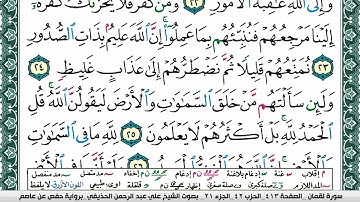 وَإِلَى ٱللَّهِ عَـٰقِبَةُ ٱلْأُمُورِ ٢٢ وَمَن كَفَرَ فَلَا يَحْزُنكَ كُفْرُهُۥٓ
إِلَيْنَا مَرْجِعُهُمْ فَنُنَبِّئُهُم بِمَا عَمِلُوٓا۟ إِنَّ ٱللَّهَ عَلِيمٌۢ بِذَاتِ ٱلصُّدُورِ
٢٣ نُمَتِّعُهُمْ قَلِيلًا ثُمَّ نَضْطَرُّهُمْ إِلَىٰ عَذَابٍ غَلِيظٍ ٢٤
وَلَئِن سَأَلْتَهُم مَّنْ خَلَقَ ٱلسَّمَـٰوَٰتِ وَٱلْأَرْضَ لَيَقُولُنَّ ٱللَّهُ قُلِ
ٱلْحَمْدُ لِلَّهِ بَلْ أَكْثَرُهُمْ لَا يَعْلَمُونَ ٢٥ لِلَّهِ مَا فِى ٱلسَّمَـٰوَٰتِ
سورة لقمان الصفحة ٤١٣ الحزب ٤٢ الجزء ٢١ بصوت الشيخ علي عبد الرحمن الحذيفي برواية حفص عن عاصم